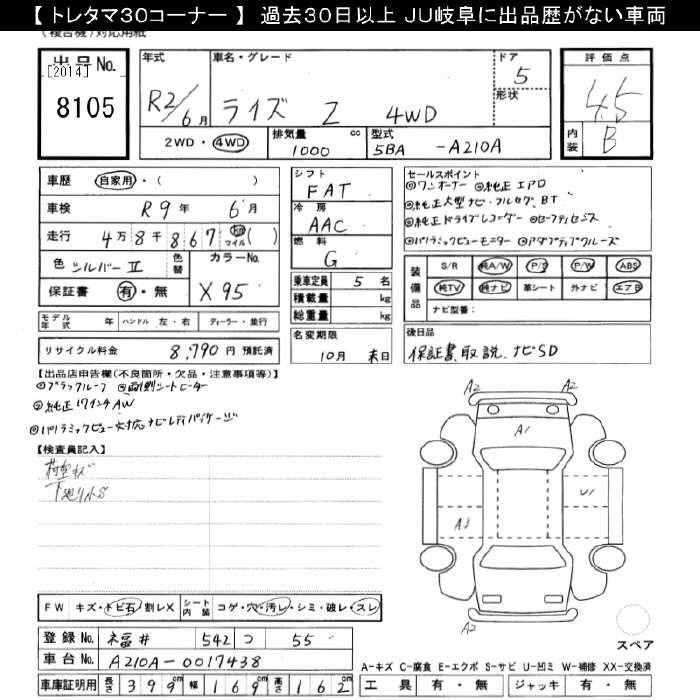 【トレタマ30コーナー】 過去30日以上 JU岐阜に出品歴がない車両
(複合機)対応用紙
出品No. 年式 車名・グレード ドア 評価点
[2014] 5
8105 R2/6月 ライズ Z 4WD 形状 4.5
2WD・4WD 排気量 cc 型式 内装 B
1000 5BA -A210A
車歴 自家用・( ) シフト セールスポイント
FAT ◎ワンオーナー ◎純正エアロ
車検 R9年 6月 冷房 ◎純正大型ナビ・フルセグ、BT
AAC ◎純正ドライブレコーダー ◎セーフティセンス
走行 4万8千867 km マイル ( ) 燃料 ◎パノラミックビューモニター ◎アダプティブクルーズ
G
色 シルバーⅡ 色替 カラーNo. 装備品 S/R 純A/W P/S P/W ABS
保証書 有・無 X95 乗車定員 5名 純TV 純ナビ 革シート 外ナビ エアB
積載量 kg ナビ型番:
総重量 kg
モデル年式 年 ハンドル 左・右 ディーラー・並行 名変期限 後日品
リサイクル料金 8,790円 預託済 10月 末日 保証書、取説、ナビSD
【出品店申告欄(不良箇所・欠品・注意事項等)】
◎ブラックルーフ ◎前側シートヒーター
◎純正17インチAW
◎パノラミックビュー対応ナビレディパッケージ
【検査員記入】
下廻りサビ
A2 A2
A1
U1
A3
A2
FW キズ・トビ石・割レX シート内装 コゲ・穴・汚レ・シミ・破レ・スレ
登録No. 福井 542 つ 55
スペア
車台No. A210A-0017438
A-キズ C-腐食 E-エクボ S-サビ U-凹ミ W-補修 XX-交換済
車庫証明用 長さ 399cm 幅 169cm 高さ 162cm 工具 有・無 ジャッキ 有・無